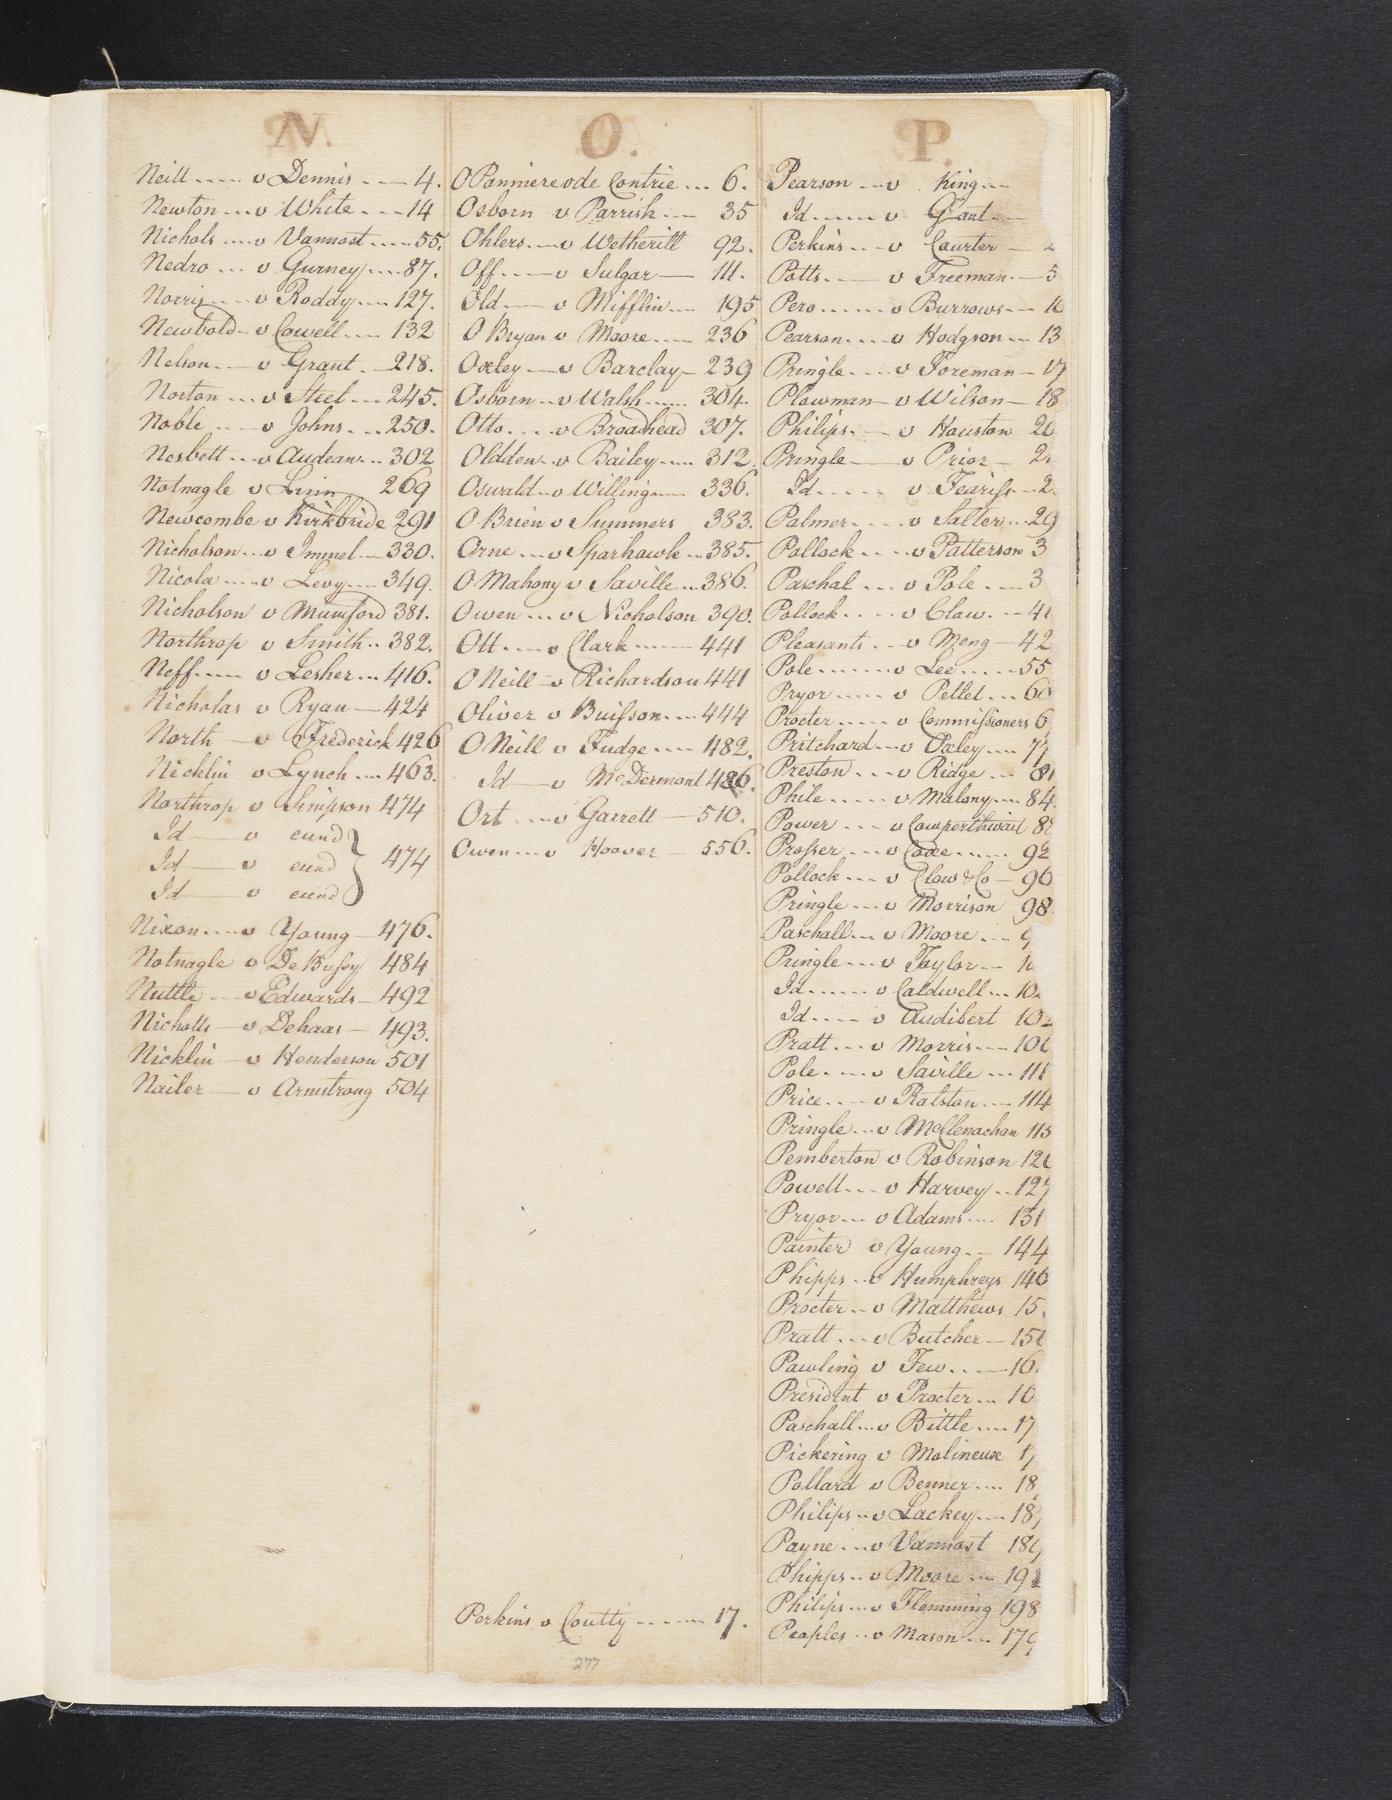 N.
Neill ..... v Dennis .. — 4.
Newton ... v White ... 14
Nichols .... v Vannost ..... 55.
Nedro ... v Gurney .... 87.
Norris .... v Roddy .... 127.
Newbold - v Cowell .... 132
Nelson .. — v Grant . — 218.
Norton ... v Steel .... 245.
Noble .. — v Johns ... 250.
Nesbett ... v Audean ... 302
Notnagle v Linn 269
Newcombe v Kirkbride 291
Nicholson ... v Immel — 330.
Nicola .... v Levy .... 349.
Nicholson v Mumford 381.
Northrop v Smith .. 382.
Neff ..... v Lesher ... 416.
Nicholas v Ryan — 424
North — v Frederick 426
Nicklin v Lynch .... 463.
Northrop v Simpson 474
Id — v eund
Id — v eund } 474
Id — v eund
Nixon .... v Young — 476.
Notnagle v De Bussy 484
Nuttle ... v Edwards — 492
Nicholls — v Dehaas — 493.
Nicklin — v Henderson 501
Nailer — v Armstrong 504
O.
Osborn v Parrish ... 35
Ohlers ... v Wetherill 92.
Off .... v Sulgar — 111.
Old — v Mifflin ... 195
O Bryan v Moore .... 236
Oxley — v Barclay — 239
Osborn .. v Walsh ..... 304.
Otto .... v Broadhead 307.
Oldden .. v Bailey .... 312
Oswald .. v Willing .... 336.
O Brien v Summers 383.
Orne ... v Sparhawk ... 385.
O Mahony v Saville ... 386.
Owen ... v Nicholson 390.
Ott .... v Clark ..... 441
O Neill — v Richardson 441
Oliver v Buisson .... 444
O Neill v Fudge .... 482.
Id — v McDermont 486.
Ort .... v Garrett — 510.
Owen ... v Hoover — 556.
Perkins v Coutty ....... 17.
277
P.
Pearson ... v King ...
Id ...... v Grant ...
Perkins ... v Courter —
Potts .... v Freeman — 5
Pero ...... v Burrows —
Pearson .... v Hodgson ... 13
Pringle ... v Foreman — 17
Plowman — v Wilson — 18
Philips . — v Houston 20
Pringle — v Prior — 2
Id ..... v Feariss .. 2
Palmer ..... v Salter ... 29
Pollock .... v Patterson 3
Paschal ... v Pole .... 3
Pollock .... v Clow ... 41
Pleasants ... v Meng — 42
Pole ....... v Lee .... 55
Pryor ..... v Pellet ... 60
Procter ..... v Commissioners 6
Pritchard ... v Oxley .... 77
Preston .... v Ridge ... 81
Phile ..... v Malony .... 84.
Power .... v Cowperthwait 88
Prosser .... v Coxe ...... 92
Pollock .... v Clow & Co — 96
Pringle ... v Morrison 98
Paschall ... v Moore .... 9
Pringle ... v Taylor ...
Id ...... v Caldwell ... 10
Id .... v Audibert 102
Pratt .... v Morris ... 106
Pole .... v Saville ... 111
Price .... v Ralston .... 114
Pringle ... v McClenachan 115
Pemberton v Robinson 126
Powell ... v Harvey .. 127
Pryor ... v Adams .... 131
Painter v Young .. — 144
Phipps .. v Humphreys 146
Procter .. v Matthews 15
Pratt .... v Butcher — 156
Pawling v Few .. — 16
President v Procter ... 16
Paschall ... v Bittle .... 17
Pickering v Molineux 17
Pollard v Benner .... 18
Philips .. v Lackey .... 187
Payne ... v Vannost 189
Phipps .. v Moore ... 191
Philips ... v Flemming 198
Peoples .. v Mason ... 179